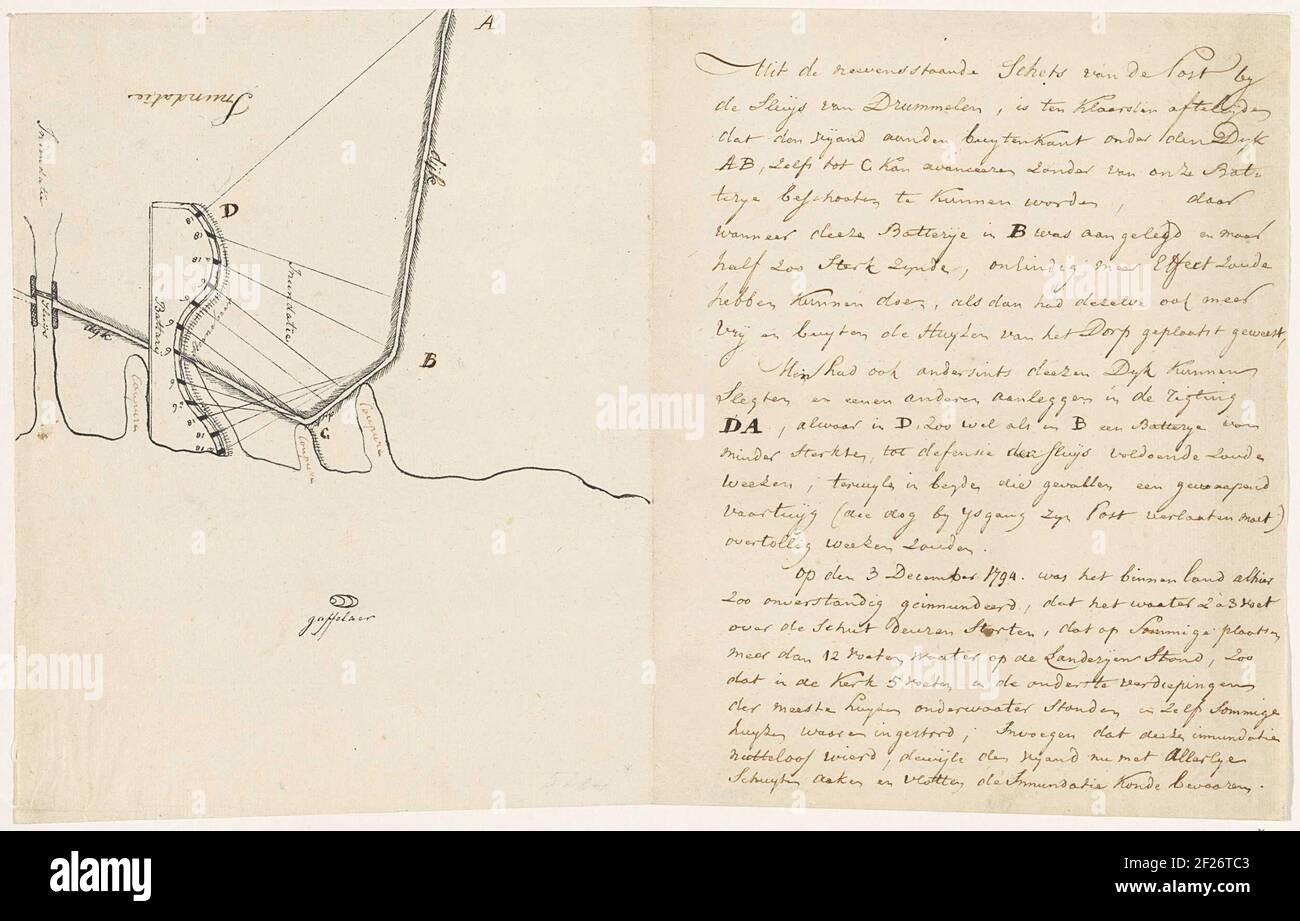 A
Inundatie
Inundatie
dijk
D
18
18
18
6
6
6
6
6
18
18
18
Inundatie
Battarij
Sluijs
dijk
B
C
Coupure
Coupure
Coupure
gaffelaer
Uit de neevensstaande Schets van de Post by
de Sluijs van Drummelen, is ten klaarsten afteleyden
dat den vyand aanden buytenkant onder den Dyk
AB, zelfs tot C kan avanceeren zonder van onze Bat-
terye beschooten te kunnen worden, daar
wanneer deeze Batterije in B was aangelegd en maar
half zoo Sterk zynde, onbindig meer Effect zoude
hebben kunnen doen, als dan had dezelve ook meer
vrij en buyten de Huyzen van het Dorp geplaatst geweest,
Men had ook andersints deezen Dyk kunnen
Slegten en eenen anderen aanleggen in de rigting
DA, alwaar in D. zoo wel als in B een Batterye van
minder Sterkten, tot defensie der Sluijs voldoende zoude
weezen; terwyle in beyde die gevallen een gewaapend
vaartuijg (die dog by ysgang zyn Post verlaaten moet)
overtollig weezen zouden.
Op den 3 December 1794. was het binnen land alhier
zoo onverstandig geinnundeerd, dat het waater 2 a 3 voet
over de Schut deuren Storten, dat op Sommige plaatsen
meer dan 12 voeten waater op de Landeryen Stond, zoo
dat in de Kerk 5 voeten in de onderste verdiepingen
der meeste huyzen onderwaater Stonden en zelfs Sommige
huyzen waaren ingestord; Invoegen dat deeze innundatie
nutteloos wierd, dewyle den vyand nu met Allerlye
Schuyten aaken en vlotten de Innundatie konde bevaaren.
alamy
Image ID: 2F26TC3
www.alamy.com